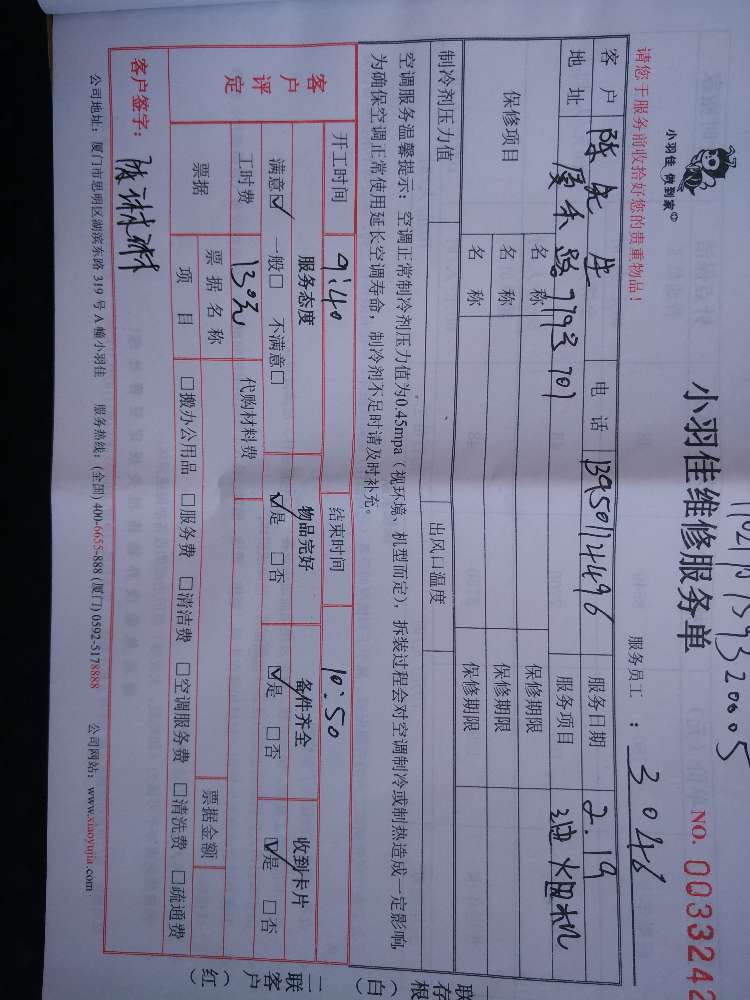 小羽佳 做到家
小羽佳维修服务单
NO. 0033242
请您于服务前收拾好您的贵重物品！
服务员工：3046
客户 陈先生 电话 13950112496 服务日期 2.19
地址 厦禾路 服务项目 油烟机
保修项目 名称 保修期限
名称 保修期限
名称 保修期限
制冷剂压力值 出风口温度
空调服务温馨提示：空调正常制冷剂压力值为0.45mpa（视环境、机型而定），拆装过程会对空调制冷或制热造成一定影响，
为确保空调正常使用延长空调寿命，制冷剂不足时请及时补充。
开工时间 9:40 结束时间 10:50
客户评定 服务态度 物品完好 备件齐全 收到卡片
满意☑ 一般□ 不满意□ ☑是 □否 ☑是 □否 ☑是 □否
工时费 130元 代购材料费
票据 票据名称 票据金额
项目 □搬办公用品 □服务费 □清洁费 □空调服务费 □清洗费 □疏通费
客户签字：
公司地址：厦门市思明区湖滨东路 319 号 A 幢小羽佳 服务热线：(全国) 400-6655-888 (厦门) 0592-5178888 公司网站：www.xiaoyujia.com
联存根（白）
二联客户（红）